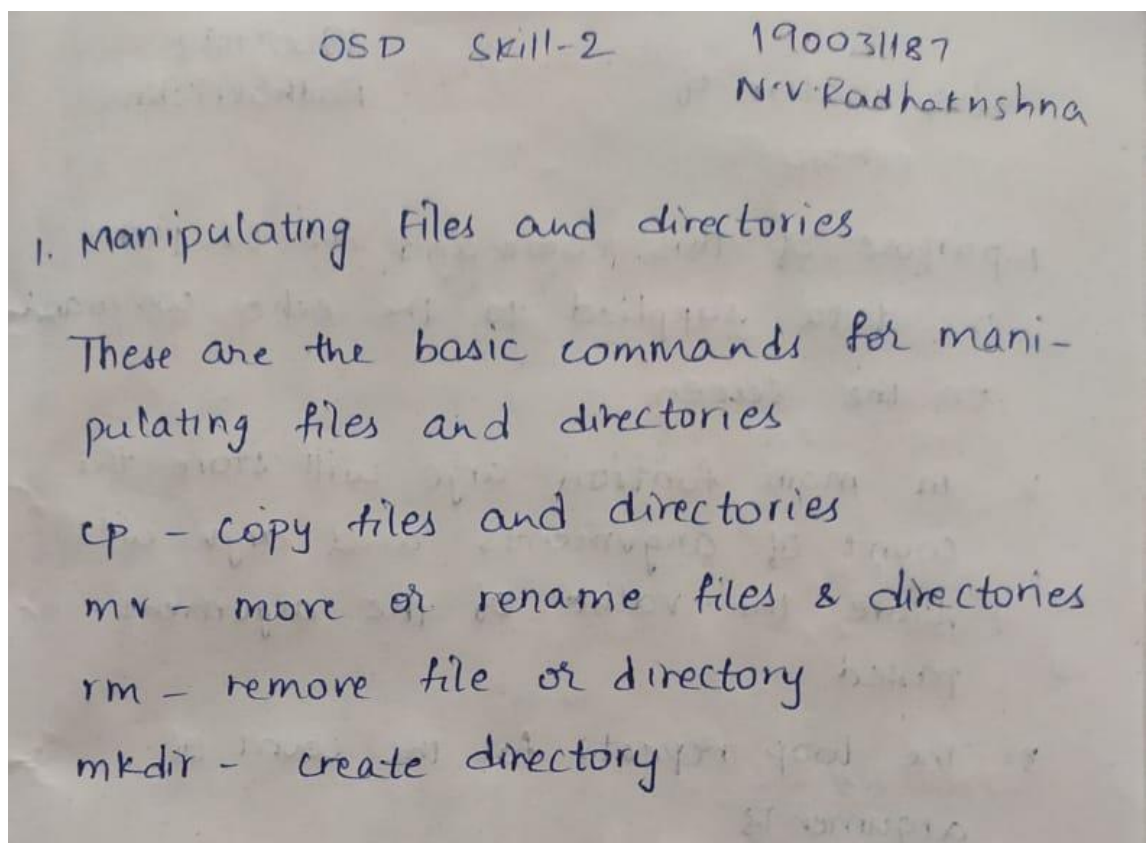 OSD Skill-2 190031187
N.V.Radhakrishna
1. Manipulating Files and directories
These are the basic commands for mani-
pulating files and directories
cp - copy files and directories
mv - move or rename files & directories
rm - remove file or directory
mkdir - create directory